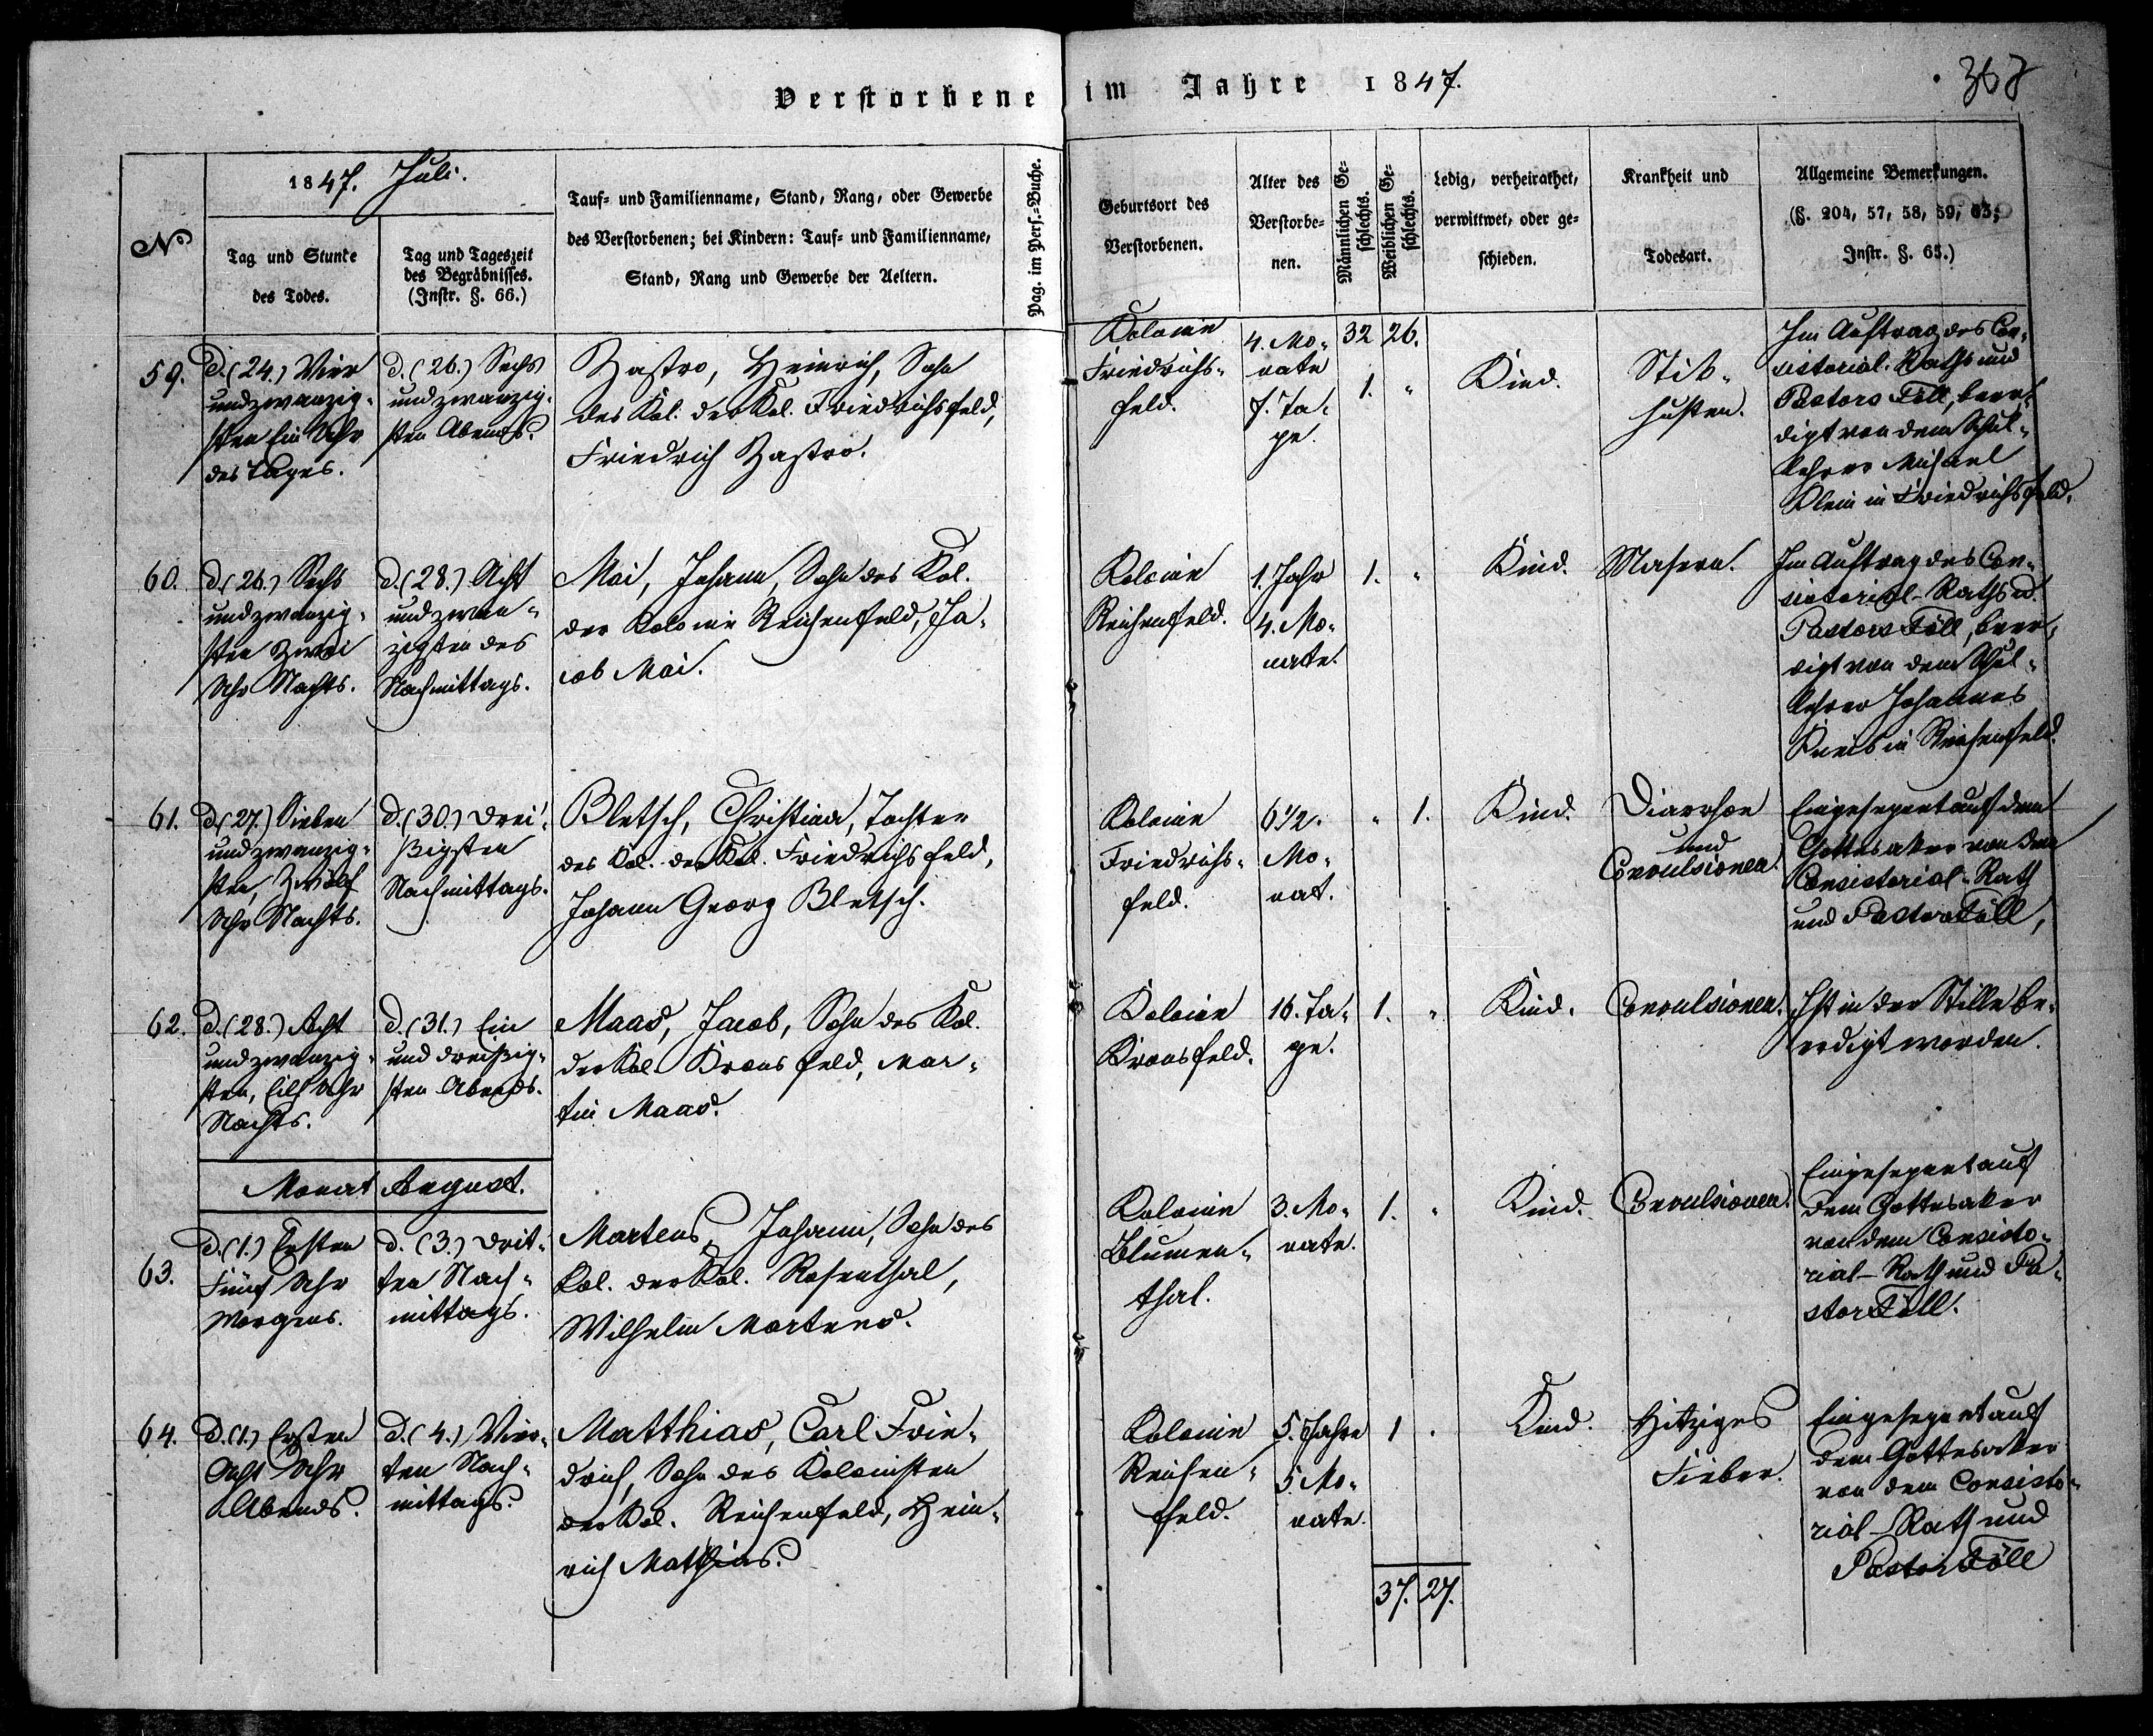 Verstorbene im Jahre 1847.
368
No
1847. Juli.
Tag und Stunde
des Todes.
Tag und Tageszeit
des Begräbnisses.
(Instr. §. 66.)
Tauf- und Familienname, Stand, Rang, oder Gewerbe
des Verstorbenen; bei Kindern: Tauf- und Familienname,
Stand, Rang und Gewerbe der Aeltern.
Pag. im Pers.-Buche.
Geburtsort des
Verstorbenen.
Alter des
Verstorbe-
nen.
Männlichen Ge-
schlechts.
Weiblichen Ge-
schlechts.
Ledig, verheirathet,
verwittwet, oder ge-
schieden.
Krankheit und
Todesart.
Allgemeine Bemerkungen.
(§. 204, 57, 58, 59, 63;
Instr. §. 65.)
32 26.
59.
d. (24.) Vier
und zwanzig-
sten Ein Uhr
des Tages.
d. (26.) Sechs
und zwanzig-
sten Abends.
Zastro, Heinrich, Sohn
des Kol. der Kol. Friedrichsfeld,
Friedrich Zastro.
Kolonie
Friedrichs-
feld.
4. Mo-
nate
7. Ta-
ge.
1. "
Kind.
Stik-
husten.
Im Auftrag des Con-
sistorial-Raths und
Pastors Föll, beer-
digt von dem Schul-
lehrer Michael
Klein in Friedrichsfeld.
60.
d. (26.) Sechs
und zwanzig-
sten Zwei
Uhr Nachts.
d. (28.) Acht
und zwan-
zigsten des
Nachmittags.
Mai, Johann, Sohn des Kol.
der Kolonie Reichenfeld, Ja-
cob Mai.
Kolonie
Reichenfeld.
1. Jahr
4. Mo-
nate.
1. "
Kind.
Masern.
Im Auftrag des Con-
sistorial-Raths u.
Pastors Föll, beer-
digt von dem Schul-
lehrer Johannes
in Reichenfeld.
61.
d. (27.) Sieben
und zwanzig-
sten, Zwölf
Uhr Nachts.
d. (30.) Drei-
ßigsten
Nachmittags.
Bletsch, Christina, Tochter
des Kol. der Kol. Friedrichsfeld,
Johann Georg Bletsch.
Kolonie
Friedrichs-
feld.
6 1/2.
Mo-
nat.
" 1.
Kind.
Diarrhoe
und
Convulsionen.
Eingesegnet auf dem
Gottesaker von dem
Consistorial-Rath
und Pastor Föll,
62.
d. (28.) Acht
und zwanzig-
sten, Eilf Uhr
Nachts.
d. (31.) Ein
und dreißig-
sten Abends.
Maas, Jacob, Sohn des Kol.
der Kol. Kronsfeld, Mar-
tin Maas.
Kolonie
Kronsfeld.
16. Ta-
ge.
1. "
Kind.
Convulsionen.
Ist in der Stille be-
erdigt worden.
Monat August.
63.
d. (1.) Ersten
Fünf Uhr
Morgens.
d. (3.) Drit-
ten Nach-
mittags.
Martens, Johann, Sohn des
Kol. der Kol. Rosenthal,
Wilhelm Martens.
Kolonie
Blumen-
thal.
3. Mo-
nate.
1. "
Kind.
Convulsionen.
Eingesegnet auf
dem Gottesaker
von dem Consisto-
rial-Rath und Pa-
stor Föll.
64.
d. (1.) Ersten
Acht Uhr
Abends.
d. (4.) Vier-
ten Nach-
mittags.
Matthias, Carl Frie-
drich, Sohn des Kolonisten
der Kol. Reichenfeld, Hein-
rich Matthias.
Kolonie
Reichen-
feld.
5. Jahre
5 Mo-
nate.
1 "
Kind.
Hitziges
Fieber.
Eingesegnet auf
dem Gottesaker
von dem Consisto-
rial-Rath und
Pastor Föll
37. 27.